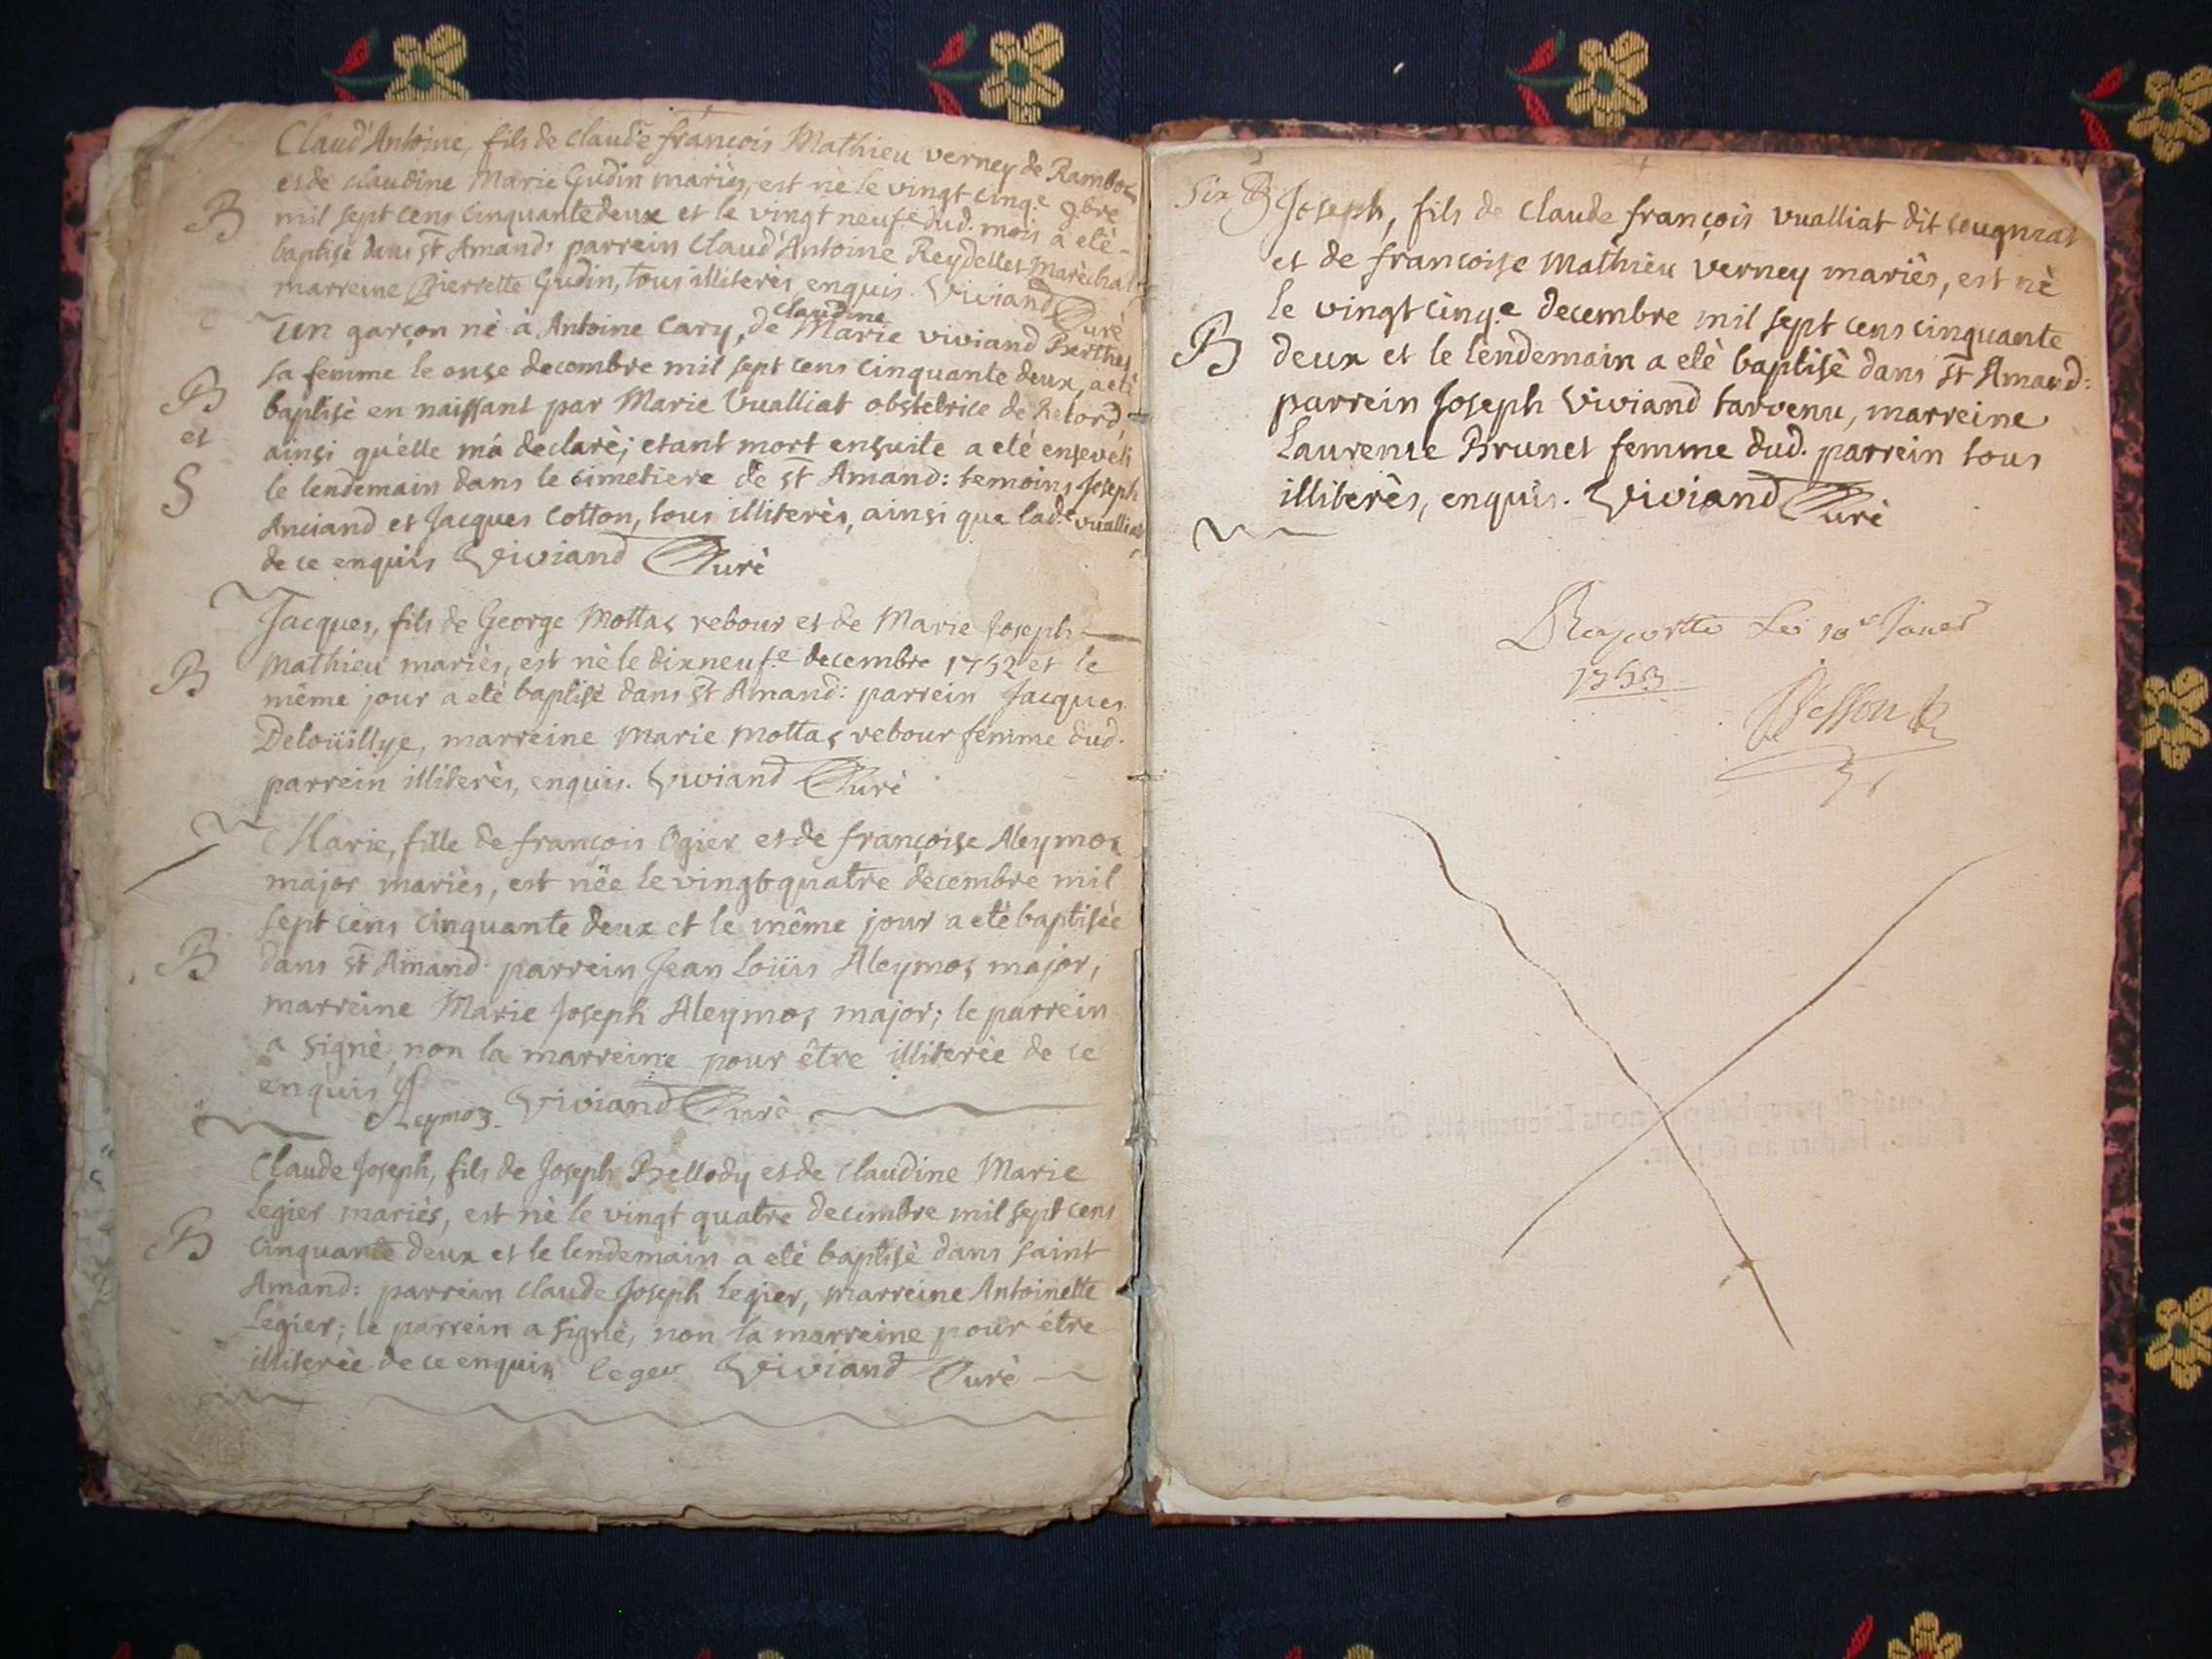 Claud'Antoine, fils de Claude françois Mathieu verney de Ramboz
et de claudine Marie Gudin mariès, est nè le vingt cinq.e 9bre
B mil sept cens cinquante deux et le vingt neuf.e dud. mois a etè
baptisè dans st Amand: parrein Claud'Antoine Reydellet Marèchal,
marreine Pierrette Gudin, tous illiterès, enquis. Viviand Curè
claudine
Un garçon nè à Antoine Cary, de Marie viviand Berthet
sa femme le onse decembre mil sept cens cinquante deux, a etè
B baptisè en naissant par Marie Vualliat obstetrice de Retord,
et ainsi qu'elle m'a declarè; etant mort ensuite a etè enseveli
S le lendemain dans le cimetiere de st Amand: temoins Joseph
Anciand et Jacques Cotton, tous illiterès, ainsi que lad.e vualliat
de ce enquis Viviand Curè
Jacques, fils de George Mottaz rebour et de Marie Joseph
B Mathieu mariès, est nè le dixneuf.e decembre 1752 et le
même jour a etè baptisè dans st Amand: parrein Jacques
Deloüillye, marreine Marie Mottaz rebour femme dud.
parrein illiterès, enquis. Viviand Curè
Marie, fille de françois Ogier et de françoise Aleymoz
major mariès, est nèe le vingt quatre decembre mil
sept cens cinquante deux et le même jour a etè baptisèe
B dans st Amand: parrein Jean Loüis Aleymoz major,
marreine Marie Joseph Aleymoz major; le parrein
a signè, non la marreine pour être illiterèe de ce
enquis Aleymoz. Viviand Curè
Claude Joseph, fils de Joseph Bellody et de Claudine Marie
Legier mariès, est nè le vingt quatre decembre mil sept cens
B cinquante deux et le lendemain a etè baptisè dans saint
Amand: parrein Claude Joseph Legier, marreine Antoinette
Legier; le parrein a signè, non la marreine pour être
illiterèe de ce enquis leger Viviand Curè
Six Joseph, fils de Claude françois vualliat dit
et de francoise Mathieu verney mariès, est nè
le vingt cinq.e decembre mil sept cens cinquante
B deux et le lendemain a etè baptisè dans st Amand:
parrein Joseph Viviand tarvenu, marreine
Laurence Brunet femme dud. parrein tous
illiterès, enquis. Viviand Curè
Raporttè Le 10e Janer
1753